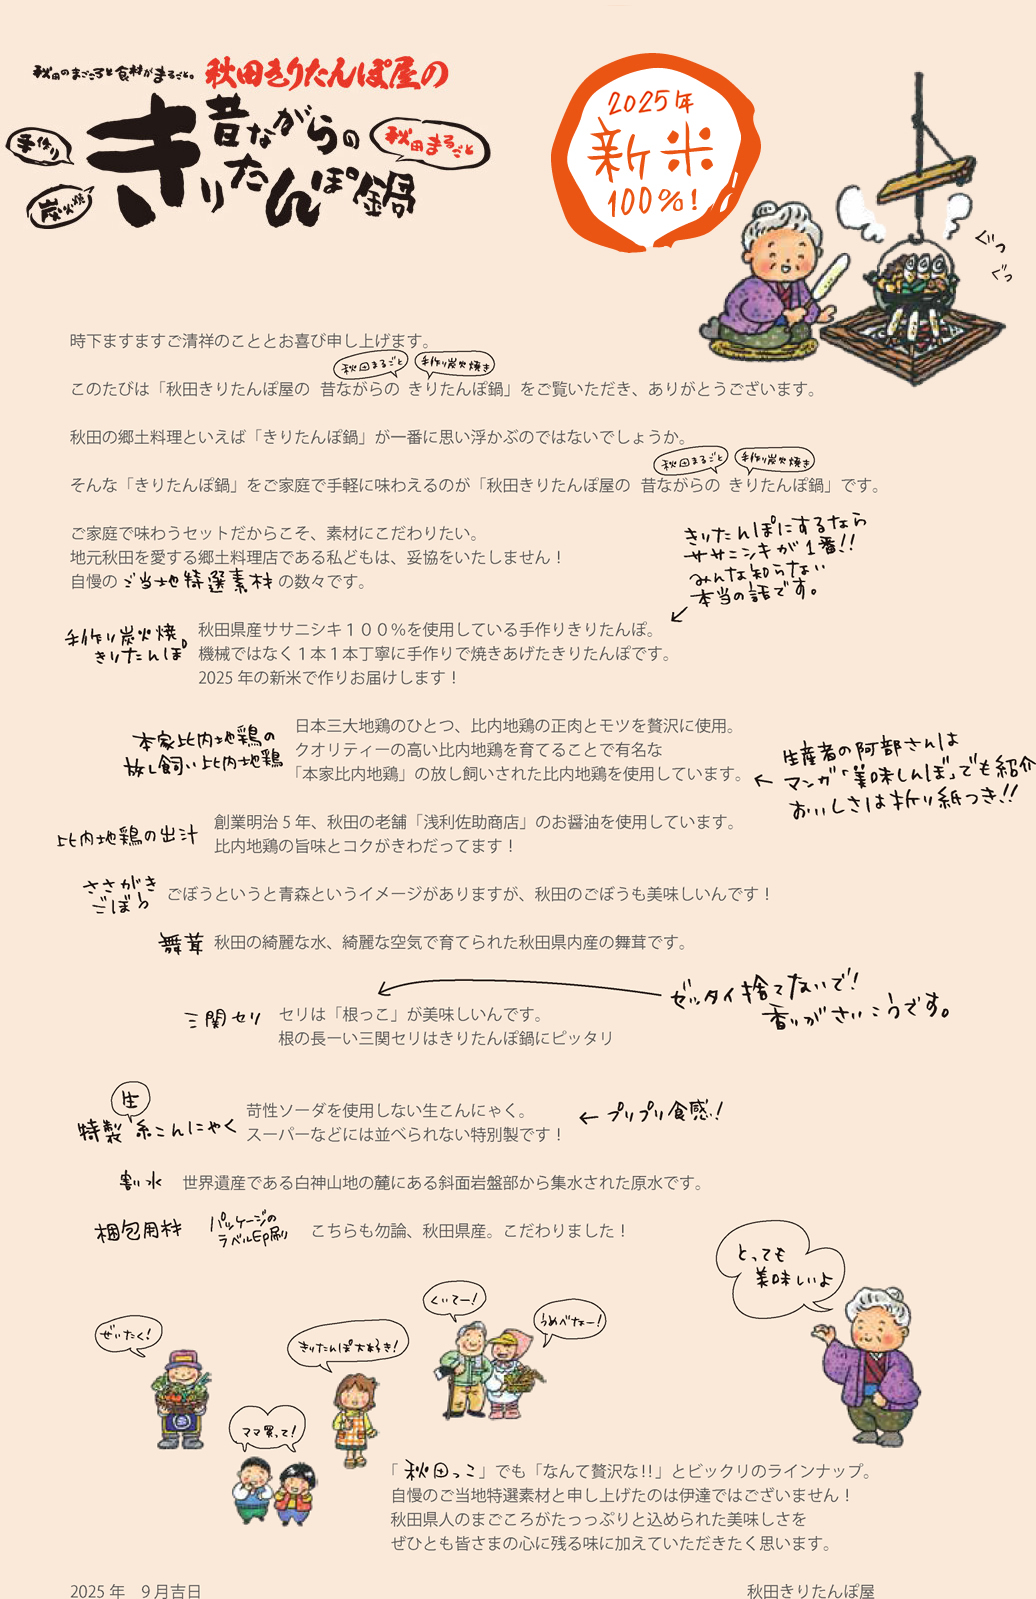 秋田のまごころと食材がまるごと。
秋田きりたんぽ屋の
手作り
炭火焼
昔ながらの
きりたんぽ鍋
秋田まるごと
2025年
新米
100%!
ぐつ
ぐつ
時下ますますご清祥のこととお喜び申し上げます。
秋田まるごと 手作り炭火焼き
このたびは「秋田きりたんぽ屋の 昔ながらの きりたんぽ鍋」をご覧いただき、ありがとうございます。
秋田の郷土料理といえば「きりたんぽ鍋」が一番に思い浮かぶのではないでしょうか。
秋田まるごと 手作り炭火焼き
そんな「きりたんぽ鍋」をご家庭で手軽に味わえるのが「秋田きりたんぽ屋の 昔ながらの きりたんぽ鍋」です。
ご家庭で味わうセットだからこそ、素材にこだわりたい。
地元秋田を愛する郷土料理店である私どもは、妥協をいたしません！
自慢の ご当地特選素材 の数々です。
きりたんぽにするなら
ササニシキが1番!!
みんな知らない
本当の話です。
手作り炭火焼。
きりたんぽ
秋田県産ササニシキ１００％を使用している手作りきりたんぽ。
機械ではなく１本１本丁寧に手作りで焼きあげたきりたんぽです。
2025 年の新米で作りお届けします！
本家比内地鶏の
放し飼い比内地鶏
日本三大地鶏のひとつ、比内地鶏の正肉とモツを贅沢に使用。
クオリティーの高い比内地鶏を育てることで有名な
「本家比内地鶏」の放し飼いされた比内地鶏を使用しています。
生産者の阿部さんは
マンガ「美味しんぼ」でも紹介
おいしさは折り紙つき!!
比内地鶏の出汁
創業明治 5 年、秋田の老舗「浅利佐助商店」のお醤油を使用しています。
比内地鶏の旨味とコクがきわだってます！
ささがき
ごぼう
ごぼうというと青森というイメージがありますが、秋田のごぼうも美味しいんです！
舞茸
秋田の綺麗な水、綺麗な空気で育てられた秋田県内産の舞茸です。
ゼッタイ捨てないで!
香りがさいこうです。
三関セリ
セリは「根っこ」が美味しいんです。
根の長ーい三関セリはきりたんぽ鍋にピッタリ
生
特製 糸こんにゃく
苛性ソーダを使用しない生こんにゃく。
スーパーなどには並べられない特別製です！
プリプリ食感!
割り水
世界遺産である白神山地の麓にある斜面岩盤部から集水された原水です。
梱包用材
パッケージの
ラベル印刷
こちらも勿論、秋田県産。こだわりました！
とっても
美味しいよ
ぜいたく!
きりたんぽ大好き!
くいてー!
うめべなー!
ママ買って!
「秋田っこ」でも「なんて贅沢な!!」とビックリのラインナップ。
自慢のご当地特選素材と申し上げたのは伊達ではございません！
秋田県人のまごころがたっっぷりと込められた美味しさを
ぜひとも皆さまの心に残る味に加えていただきたく思います。
2025 年　9 月吉日
秋田きりたんぽ屋